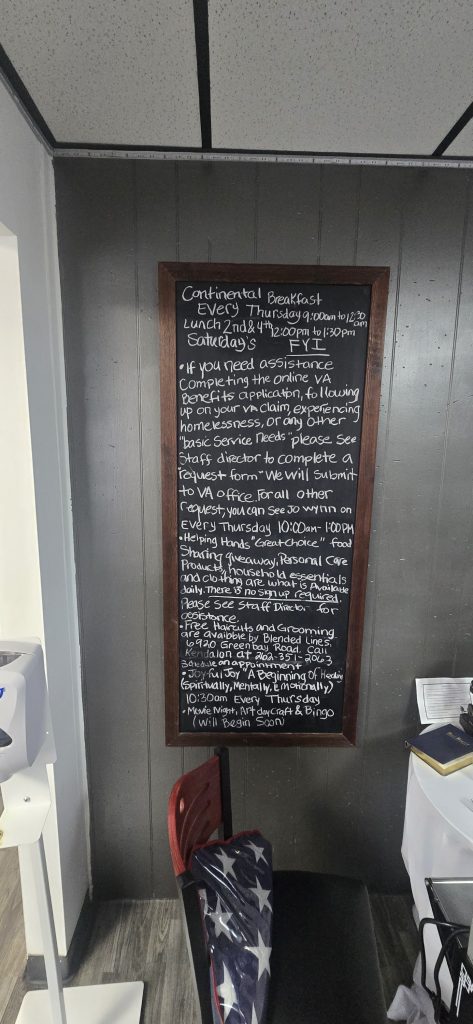 Continental Breakfast
Every Thursday 9:00am to 12:30 am
Lunch 2nd & 4th 12:00pm to 1:30pm
Saturday's FYI
• If you need assistance
Completing the online VA
Benefits application, following
up on your VA claim, experiencing
homelessness, or any other
"basic Service Needs" please See
Staff director to complete a
"request form" We will Submit
to VA office. For all other
request, you can See Jo Wynn on
Every Thursday 10:00am - 1:00PM
• Helping Hands "Great Choice" food
Sharing giveaway. Personal Care
Products, household essentials
and clothing are what is Available
daily. There is no sign up required.
Please See Staff Director for
assistance.
• Free Haircuts and Grooming
are available by Blended Lines,
6920 Greenbay Road. Call
Kendalon at 262-351-2063
Schedule an appointment
• Joyful Joy "A Beginning of Healing
(Spiritually, Mentally, Emotionally)
10:30am Every Thursday
• Movie Night, Art day Craft & Bingo
(Will Begin Soon)